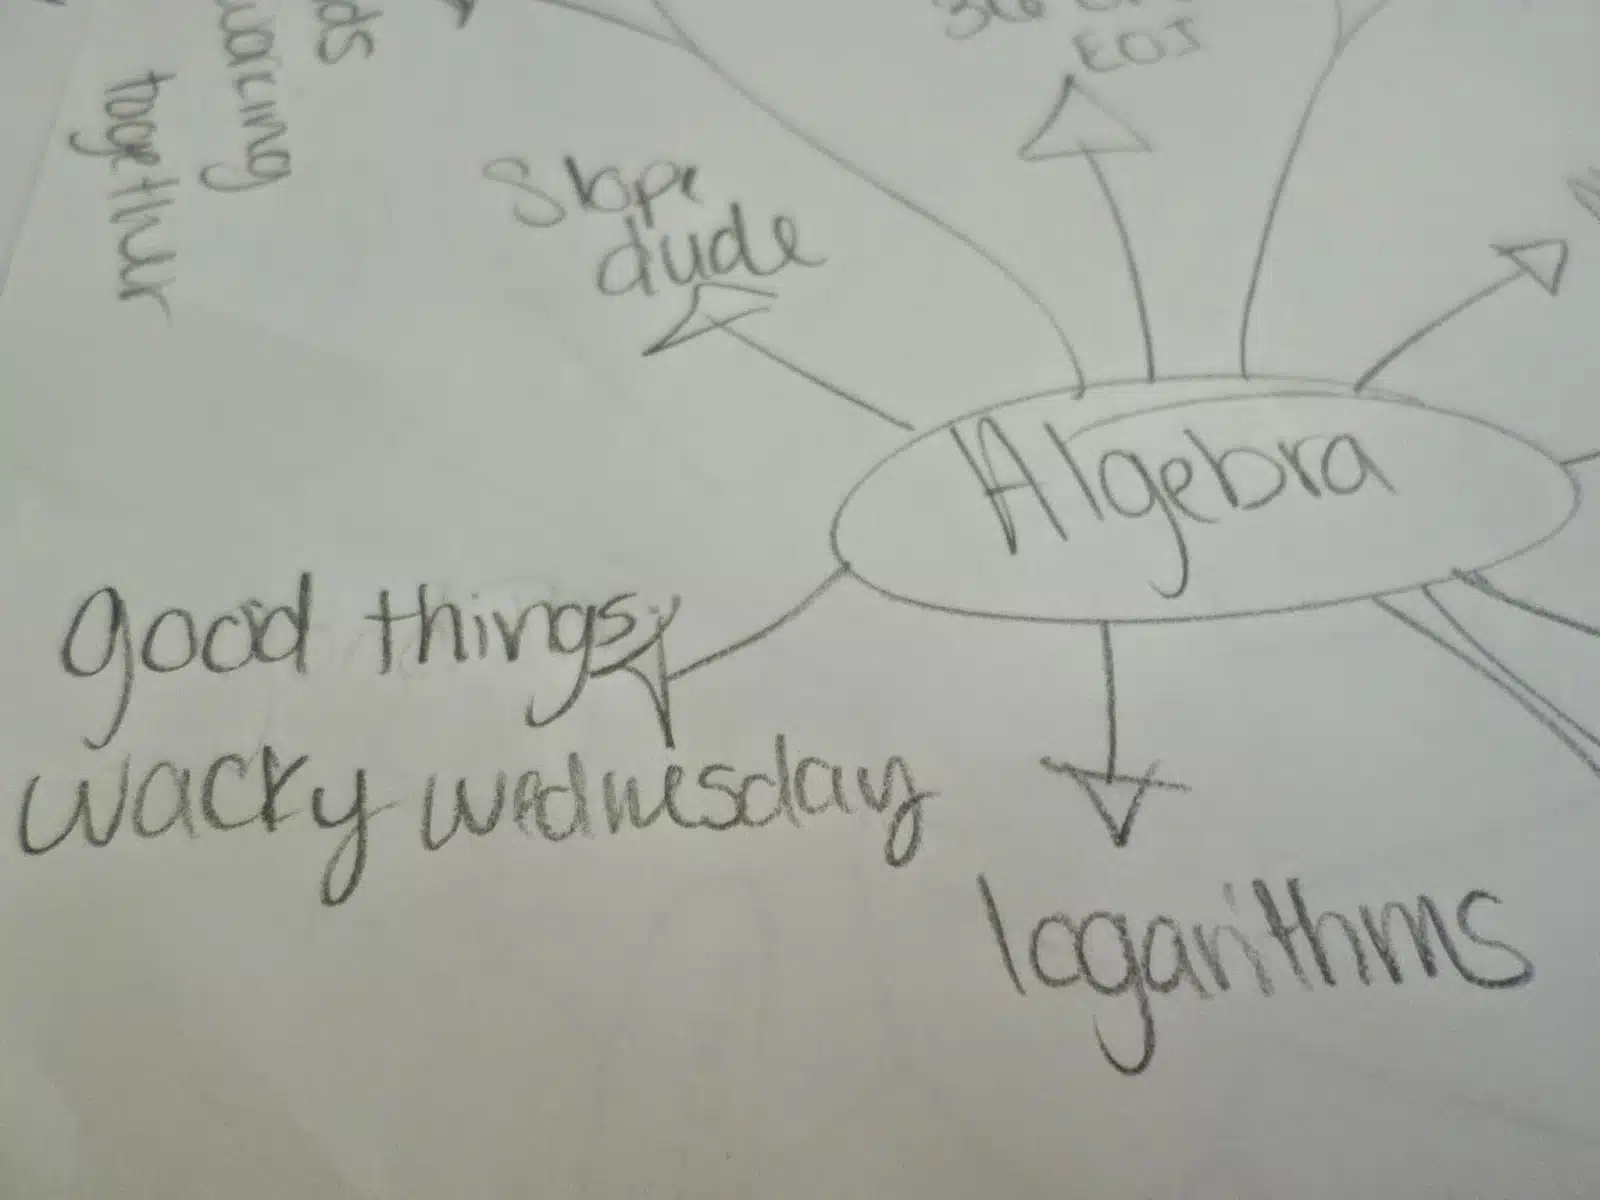 together
EOI
Slope
dude
Algebra
good things,
wacky wednesday
logarithms